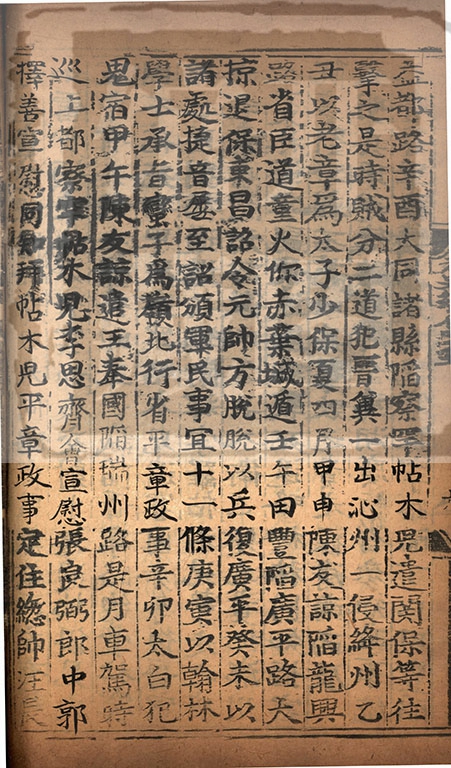 益都路辛酉大同諸縣陷察罕帖木兒遣關保等往
擊之是時賊分二道犯晉冀一出沁州一侵絳州乙
丑以老章為太子少保夏四月甲申陳友諒陷龍興
路省臣道童火你赤棄城遁壬午田豐陷廣平路大
掠退保東昌詔令元帥方脫脫以兵復廣平癸未以
諸處捷音屢至詔頒軍民事宜十一條庚寅以翰林
學士承旨蠻子為嶺北行省平章政事辛卯太白犯
鬼宿甲午陳友諒遣王奉國陷瑞州路是月車駕時
巡上都察罕帖木兒李思齊會宣慰張良弼郎中郭
擇善宣慰同知拜帖木兒平章政事定住總帥汪長